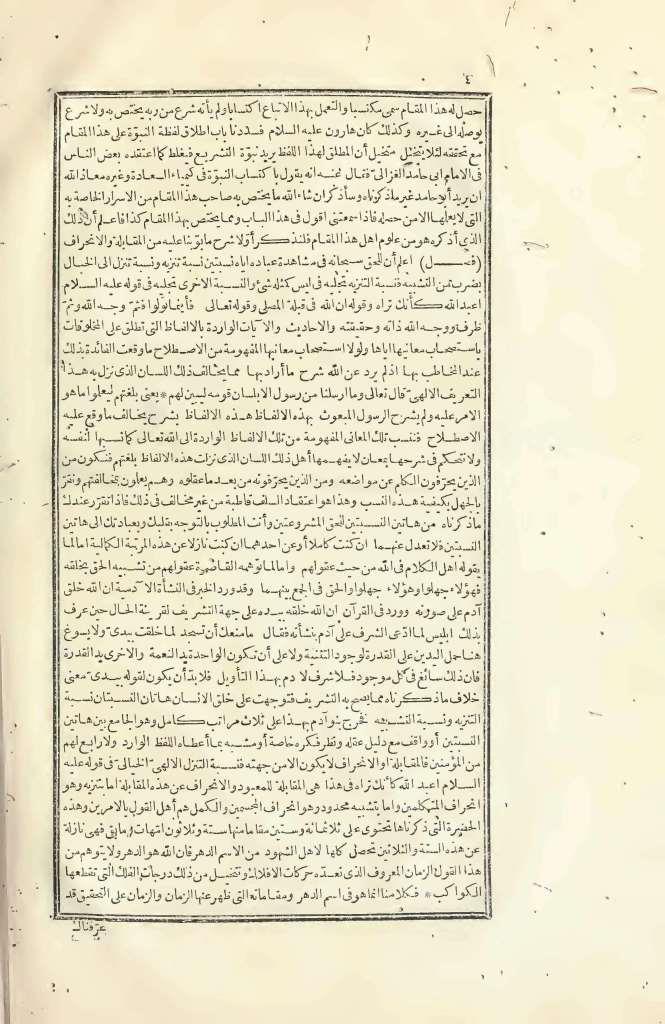 ٤
حصل له هذا المقام سمى مكتسبا والتعمل بهذا الاتباع اكتسابا ولم يأته شرع من ربه يختص به ولا شرع
يوصله الى غيره وكذلك كان هارون عليه السلام فسددنا باب اطلاق لفظة النبوّة على هذا المقام
مع تحققه لئلا يتخيل متخيل أن المطلق لهذا اللفظ يريد نبوّة التشريع فيغلط كما اعتقده بعض الناس
فى الامام ابى حامد الغزالى فقال عنه انه يقول باكتساب النبوّة فى كيمياء السعادة وغيره معاذ الله
ان يريد أبو حامد غير ما ذكرناه وسأذكر ان شاء الله ما يختص به صاحب هذا المقام من الاسرار الخاصة به
التى لا يعلمها الا من حصله فاذا سمعتنى اقول فى هذا الباب ومما يختص بهذا المقام كذا فاعلم أن ذلك
الذى أذكره هو من علوم اهل هذا المقام فلنذكر أولا شرح ما بوّبنا عليه من المقابلة والانحراف
(فصل) اعلم أن للحق سبحانه فى مشاهدة عباده اياه نسبتين نسبة تنزيه ونسبة تنزل الى الخيال
بضرب من التشبيه فنسبة التنزيه تجليه فى ليس كمثله شئ والنسبة الاخرى تجليه فى قوله عليه السلام
اعبد الله كأنك تراه وقوله ان الله فى قبلة المصلى وقوله تعالى فأينما تولوا فثم وجه الله وثم
ظرف ووجه الله ذاته وحقيقته والاحاديث والآيات الواردة بالالفاظ التى تطلق على المخلوقات
باستصحاب معانيها اياها ولولا استصحاب معانيها المفهومة من الاصطلاح ما وقعت الفائدة بذلك
عند المخاطب بها اذ لم يرد عن الله شرح ما أراد بها مما يخالف ذلك اللسان الذى نزل به هذا
التعريف الالهى قال تعالى وما أرسلنا من رسول الا بلسان قومه ليبين لهم * يعنى بلغتهم ليعلموا ما هو
الامر عليه ولم يشرح الرسول المبعوث بهذه الالفاظ هذه الالفاظ بشرح يخالف ما وقع عليه
الاصطلاح فننسب تلك المعانى المفهومة من تلك الالفاظ الواردة الى الله تعالى كما نسبها لنفسه
ولا نتحكم فى شرحها بمعان لا يفهمها أهل ذلك اللسان الذى نزلت هذه الالفاظ بلغتهم فنكون من
الذين يحرّفون الكلم عن مواضعه ومن الذين يحرّفونه من بعد ما عقلوه وهم يعلمون بمخالفتهم ونقرّ
بالجهل بكيفية هذه النسب وهذا هو اعتقاد السلف قاطبة من غير مخالف فى ذلك فاذا تقرّر عندك
ما ذكرناه من هاتين النسبتين للحق المشروعتين وأنت المطلوب بالتوجه بقلبك وبعبادتك الى هاتين
النسبتين فلا تعدل عنهما ان كنت كاملا أو عن احدهما ان كنت نازلا عن هذه المرتبة الكمالية اما لما
يقوله اهل الكلام فى الله من حيث عقولهم واما لما توهمه القاصرة عقولهم من تشبيه الحق بخلقه
فهؤلاء جهلوا وهؤلاء جهلوا والحق فى الجمع بينهما وقد ورد الخبر فى النشأة الآدمية ان الله خلق
آدم على صورته وورد فى القرآن ان الله خلقه بيده على جهة التشريف لقرينة الحال حين عرف
بذلك ابليس لما ادّعى الشرف على آدم بنشأته فقال ما منعك أن تسجد لما خلقت بيدىّ ولا يسوغ
هنا حمل اليدين على القدرة لوجود التثنية ولا على أن تكون الواحدة يد النعمة والاخرى يد القدرة
فان ذلك سائغ فى كل موجود فلا شرف لآدم بهذا التأويل فلا بد أن يكون لقوله بيدىّ معنى
خلاف ما ذكرناه مما يصح به التشريف فتوجهت على خلق الانسان هاتان النسبتان نسبة
التنزيه ونسبة التشبيه فخرج بنو آدم بهذا على ثلاث مراتب كامل وهو الجامع بين هاتين
النسبتين أو واقف مع دليل عقله ونظر فكره خاصة أو مشبه بما أعطاه اللفظ الوارد ولا رابع لهم
من المؤمنين فالمقابلة او الانحراف لا يكون الا من جهة نسبة التنزل الالهى الخيالى فى قوله عليه
السلام اعبد الله كأنك تراه فهذا هى المقابلة للمعبود والانحراف عن هذه المقابلة اما بتنزيه وهو
انحراف المتكلمين واما بتشبيه محدود وهو انحراف المجسمين والكمل هم أهل القول بالامرين وهذه
الحضرة التى ذكرناها تحتوى على ثلثمائة وستين مقاما منها ستة وثلاثون امهات وما بقى فهى نازلة
عن هذه الستة والثلاثين تحصل كلها لاهل الشهود من الاسم الدهر فان الله هو الدهر ولا يتوهم من
هذا القول الزمان المعروف الذى تعدّه حركات الافلاك وتتخيل من ذلك درجات الفلك التى تقطعها
الكواكب * فكلامنا انما هو فى اسم الدهر ومقاماته التى ظهر عنها الزمان والزمان على التحقيق قد
عرّفناك